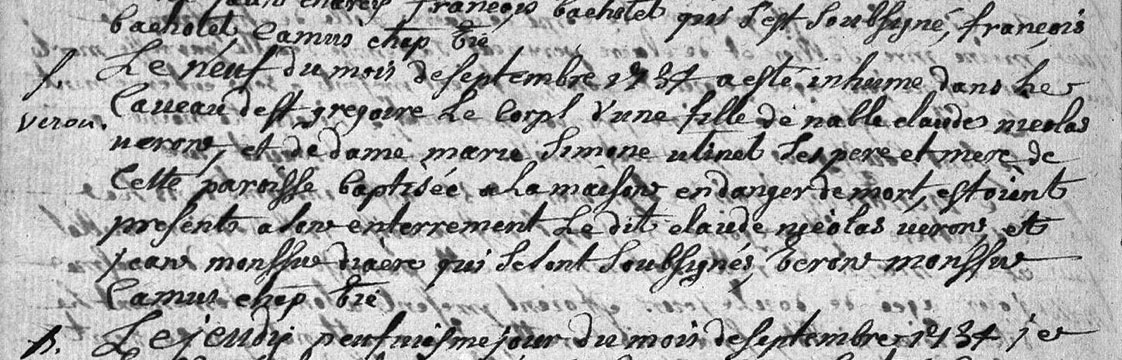 françois bachotet qui s'est soubsigné, françois
bachotet Camus chap
Le neuf du mois de septembre 1734 a esté inhume dans Le
veron. Caveau de st gregoire Le Corps d'une fille de noble claude nicolas
veron, et de dame marie Simone utinet Ses pere et mere de
Cette paroisse baptisée a La maison en danger de mort, estoient
presents a son enterrement Le dit claude nicolas veron, et
jean monssu diacre qui Se sont Soubsignés, Veron monssu
Camus chap
Le jeudy neufuisme jour du mois de septembre 1734 je